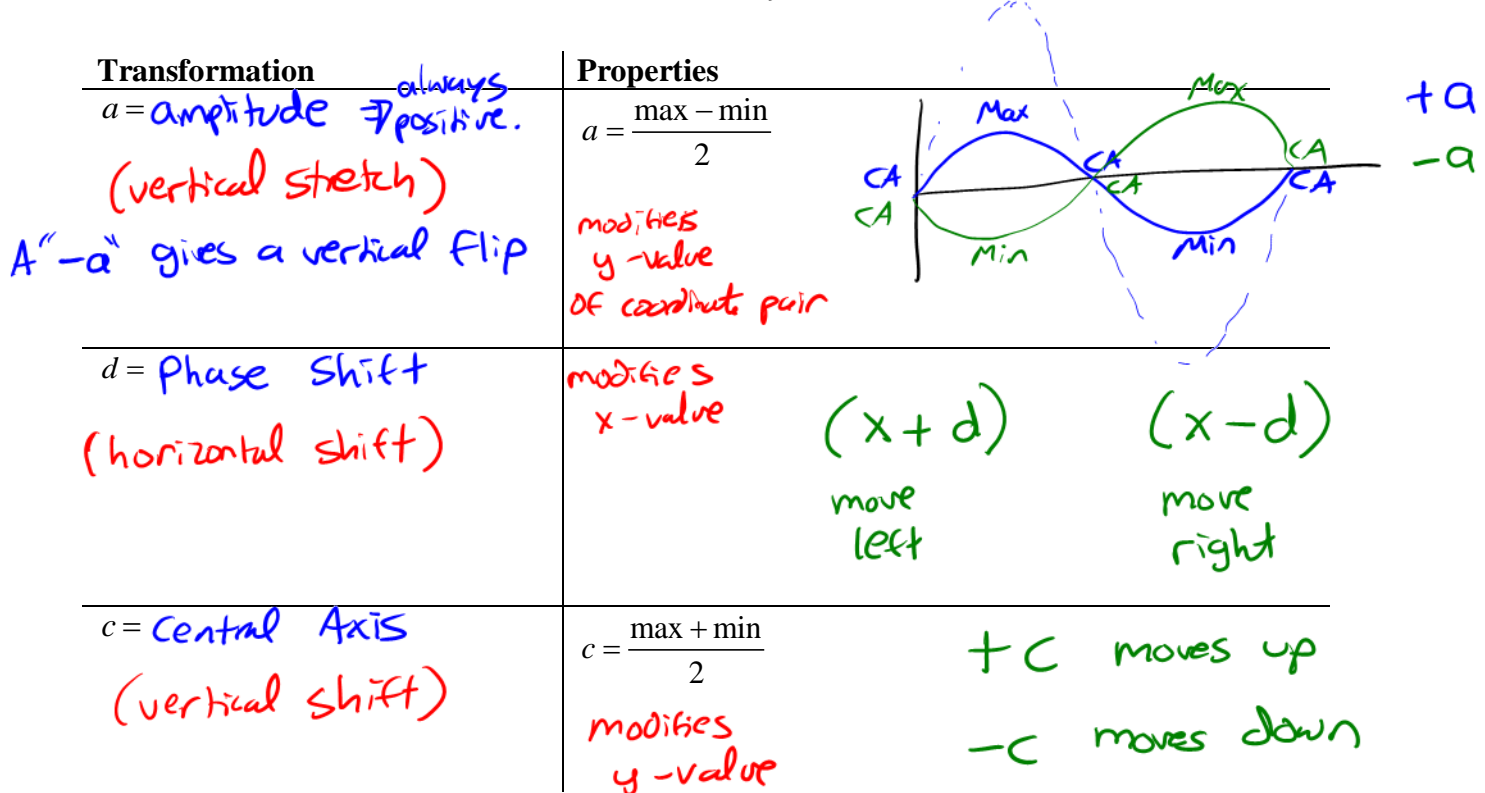 Transformation
Properties
a = amplitude → always positive.
(vertical stretch)
A "-a" gives a vertical flip
a = (max − min) / 2
modifies
y-value
of coordinate pair
Max
Max
CA
CA
CA
CA
CA
CA
Min
Min
+a
-a
d = Phase Shift
(horizontal shift)
modifies
x-value
(x+d)
move
left
(x-d)
move
right
c = Central Axis
(vertical shift)
c = (max + min) / 2
modifies
y-value
+c moves up
-c moves down